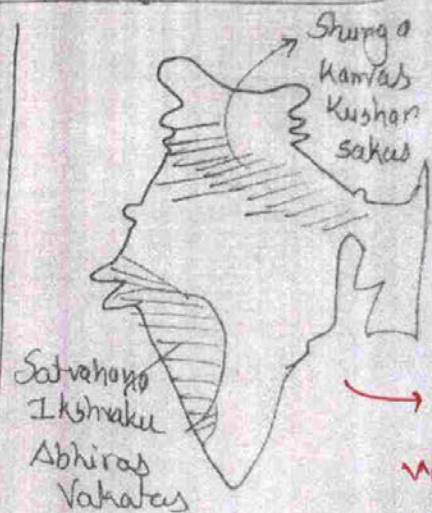 Shunga
Kanvas
Kushan
Sakas
Satvahana
Ikshvaku
Abhiras
Vakatas